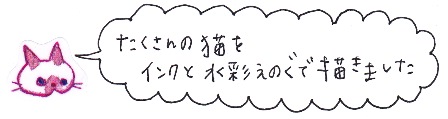 たくさんの猫を
インクと水彩えのぐで描きました